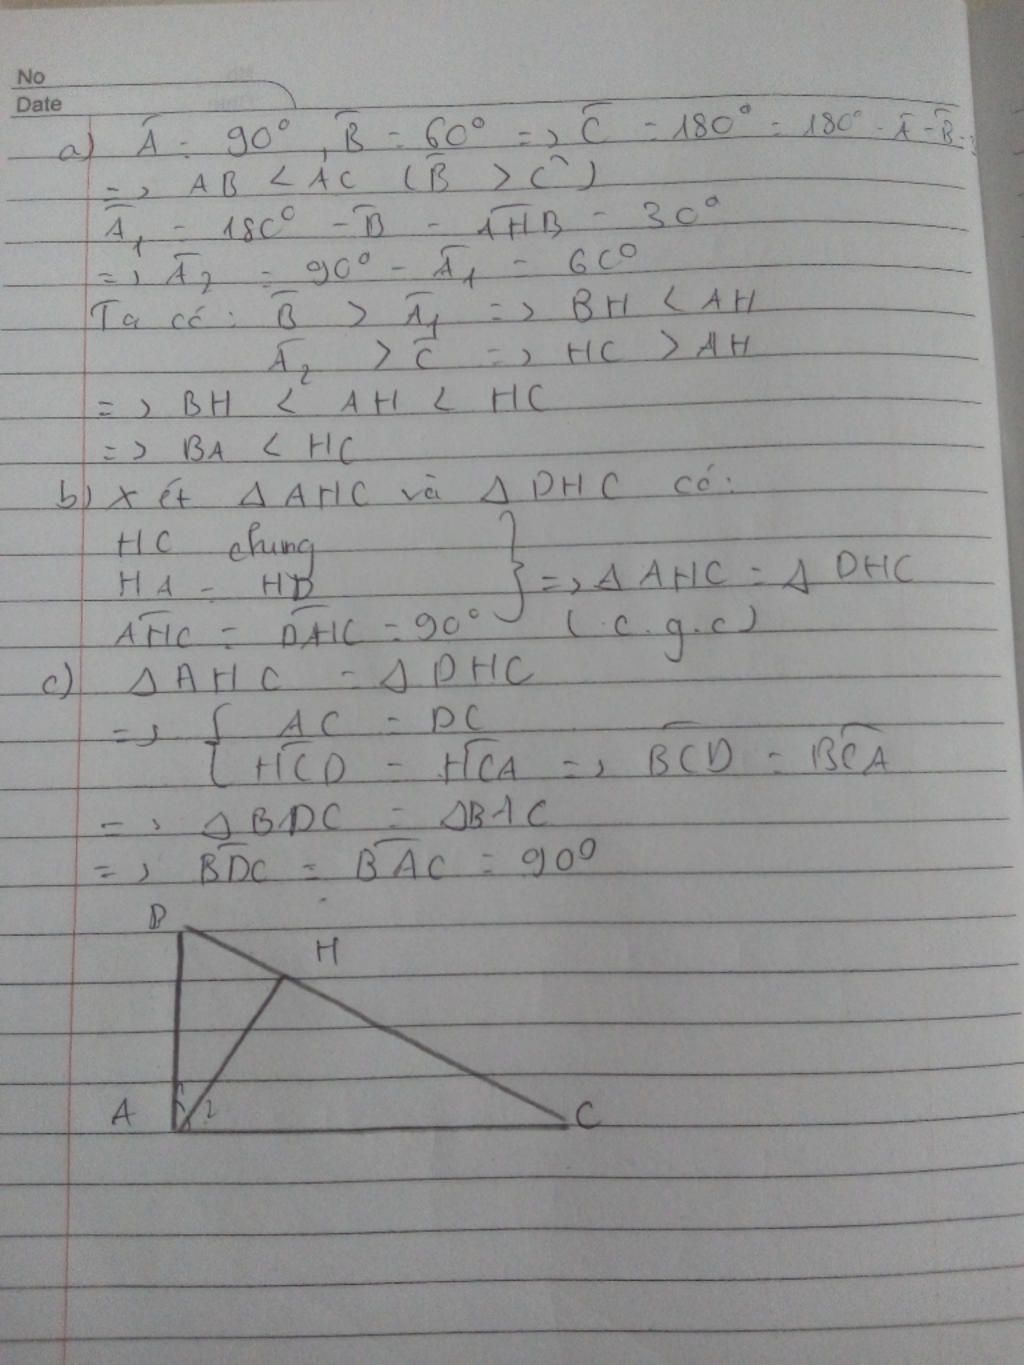 No
Date
a) Â = 90°, B̂ = 60° => Ĉ = 180° = 180° - Â - B̂ =
=> AB < AC (B̂ > Ĉ)
Â₁ = 180° - B̂ - AHB = 30°
=> Â₂ = 90° - Â₁ = 60°
Ta có: B̂ > Â₁ => BH < AH
Â₂ > Ĉ => HC > AH
=> BH < AH < HC
=> BA < HC
b) Xét Δ AHC và Δ DHC có:
HC chung
HA = HD } => Δ AHC = Δ DHC
AHC = DHC = 90° (c.g.c)
c) Δ AHC = Δ DHC
=> { AC = DC
HCD = HCA => BCD = BCA
=> Δ BDC = Δ BAC
=> BDC = BAC = 90°
B
H
A 1 2 C